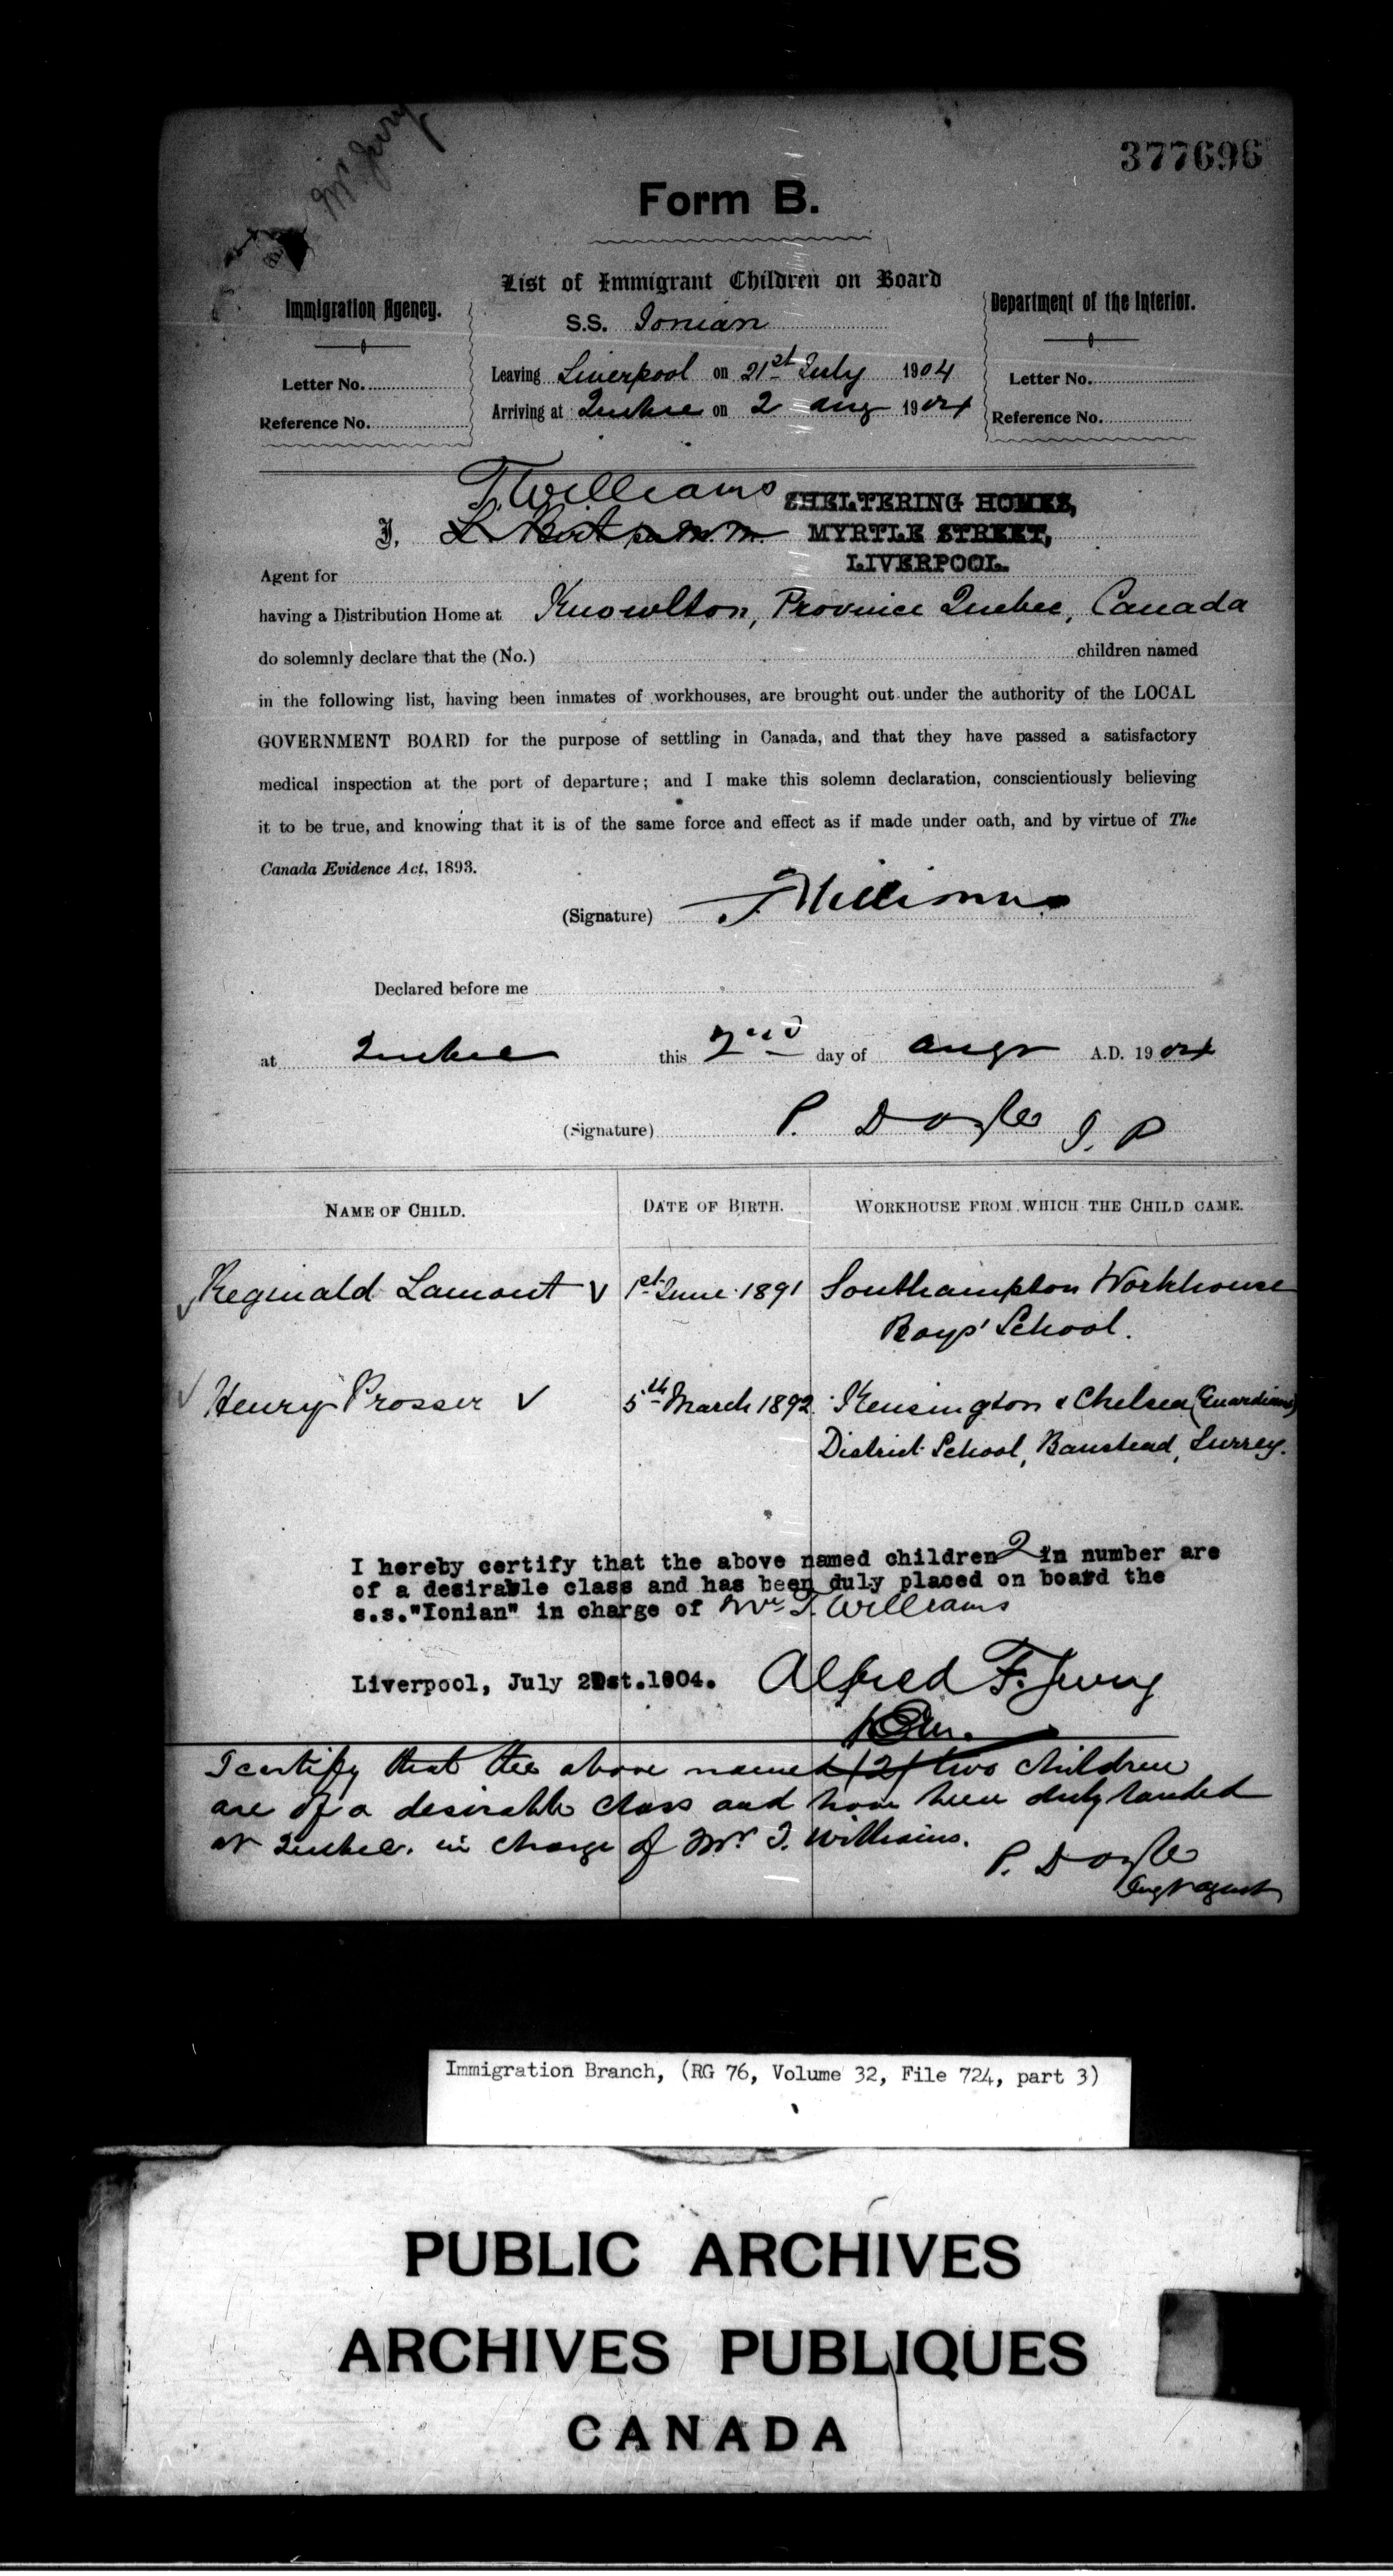 Mr Jury
377696
Form B.
List of Immigrant Children on Board
Immigration Agency.
Department of the Interior.
S.S. Ionian
Leaving Liverpool on 21st July 1904
Letter No.
Letter No.
Arriving at Quebec on 2 Aug 1904
Reference No.
Reference No.
T. Williams
SHELTERING HOMES,
I,
MYRTLE STREET,
LIVERPOOL.
Agent for
having a Distribution Home at Knowlton, Province Quebec, Canada
do solemnly declare that the (No.) children named
in the following list, having been inmates of workhouses, are brought out under the authority of the LOCAL
GOVERNMENT BOARD for the purpose of settling in Canada, and that they have passed a satisfactory
medical inspection at the port of departure; and I make this solemn declaration, conscientiously believing
it to be true, and knowing that it is of the same force and effect as if made under oath, and by virtue of The
Canada Evidence Act, 1893.
(Signature) T Williams
Declared before me
at Quebec this 2nd day of Augt A.D. 1904
(Signature) P. Doyle J. P
NAME OF CHILD.
DATE OF BIRTH.
WORKHOUSE FROM WHICH THE CHILD CAME.
Reginald Lamont
1st June 1891
Southampton Workhouse
Boys' School.
Henry Prosser
5th March 1892
Kensington & Chelsea (Guardians)
District School, Banstead, Surrey.
I hereby certify that the above named children 2 in number are
of a desirable class and has been duly placed on board the
s.s."Ionian" in charge of Mr T. Williams
Liverpool, July 21st.1904.
Alfred F. Jury
I certify that the above named (2) two children
are of a desirable class and have been duly landed
at Quebec. in charge of Mr T. Williams.
P. Doyle
agent
Immigration Branch, (RG 76, Volume 32, File 724, part 3)
PUBLIC ARCHIVES
ARCHIVES PUBLIQUES
CANADA